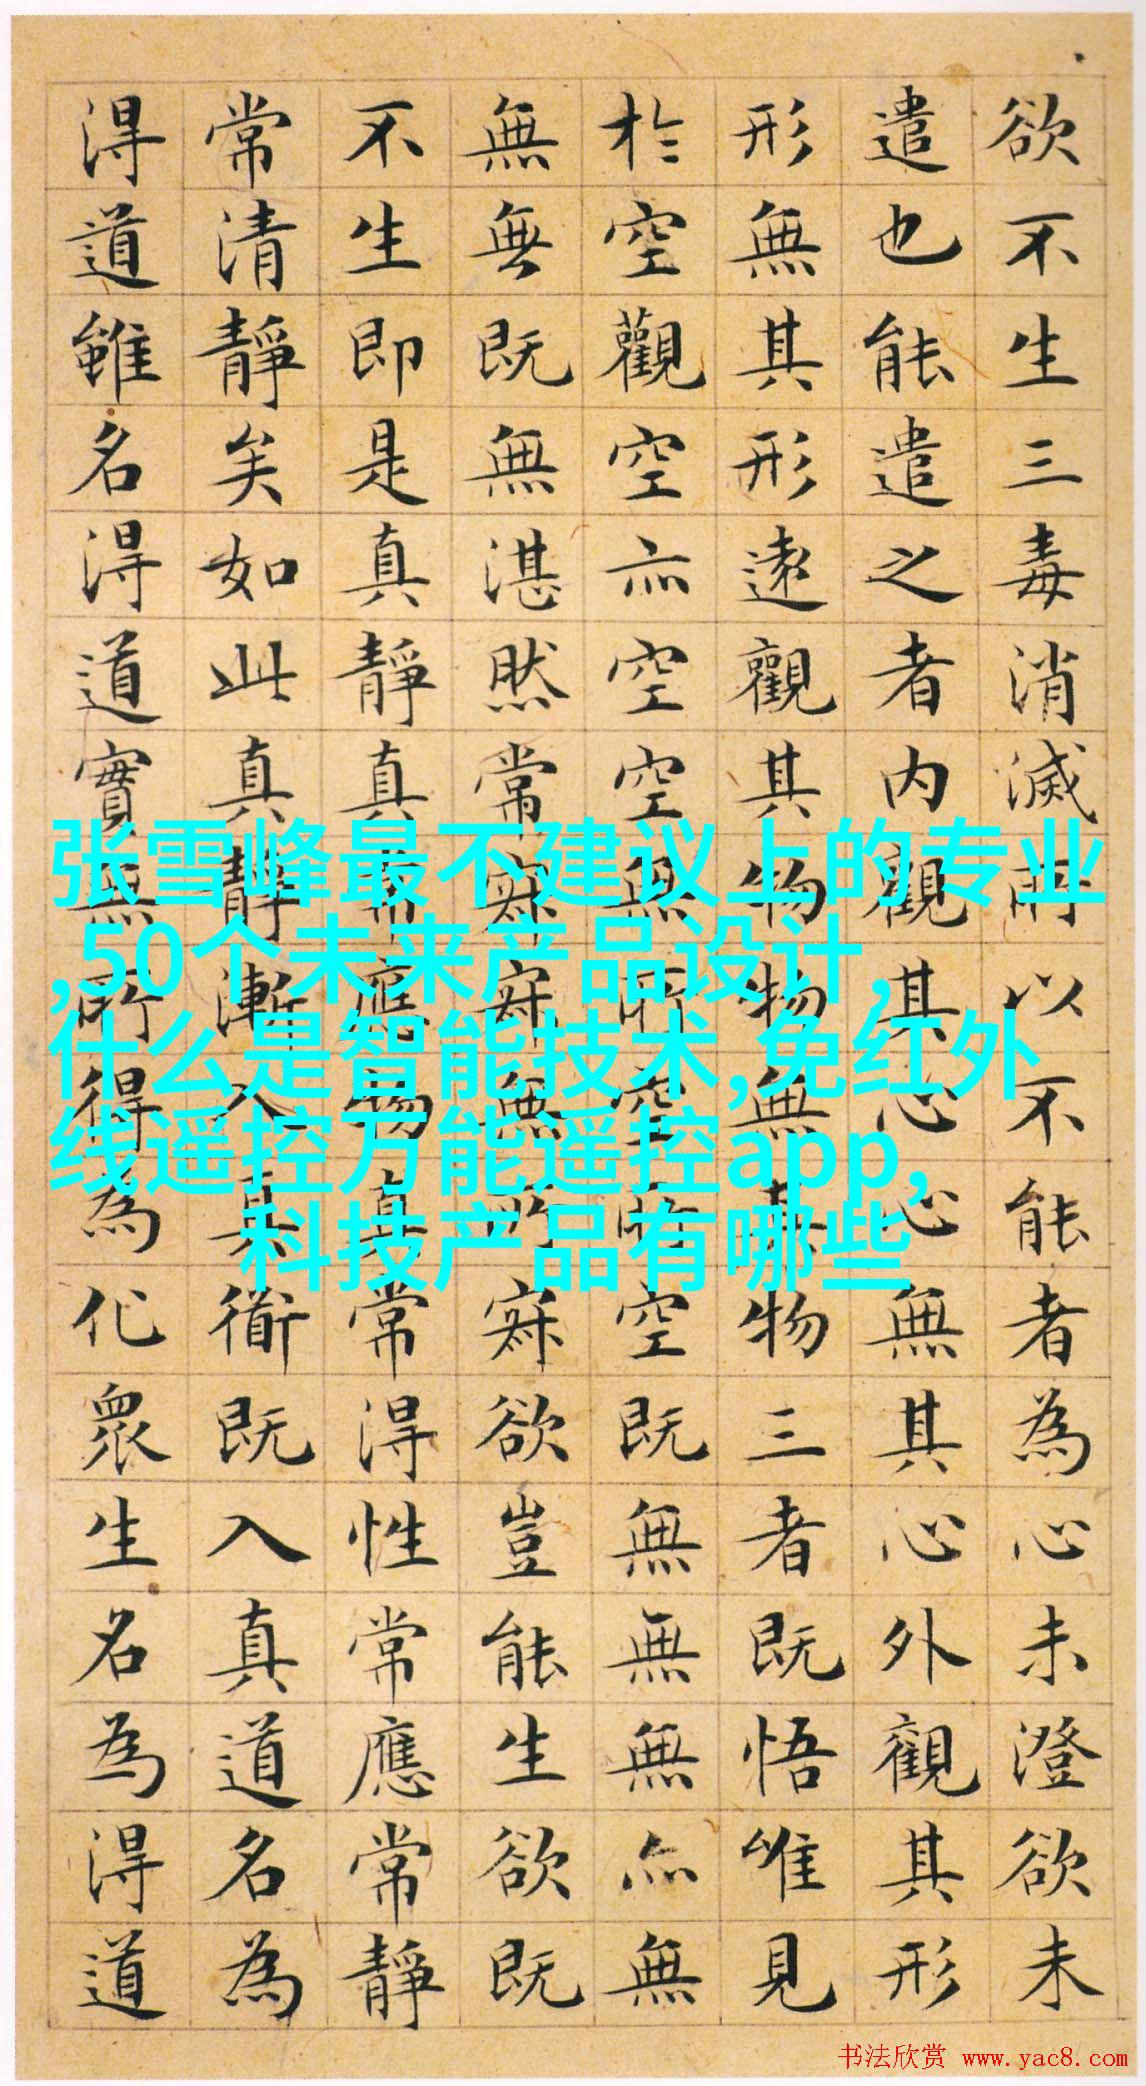 欲不生三毒消滅所以不能者為心未澄欲未
遣也能遣之者内觀其心心無其心外觀其形
形無其形遠觀其物物無其物三者既悟唯見
於空觀空亦空空無所空所空既無無無亦無
無無既無湛然常寂寂無所寂欲豈能生欲既
不生即是真靜真常應物真常得性常應常靜
常清靜矣如此真靜漸入真衟既入真道名為
得道雖名得道實無所得為化眾生名為得道
张雪峰最不建议上的专业
,50个未来产品设计,
什么是智能技术,免红外
线遥控万能遥控app,
科技产品有哪些
书法欣赏 www.yac8.com